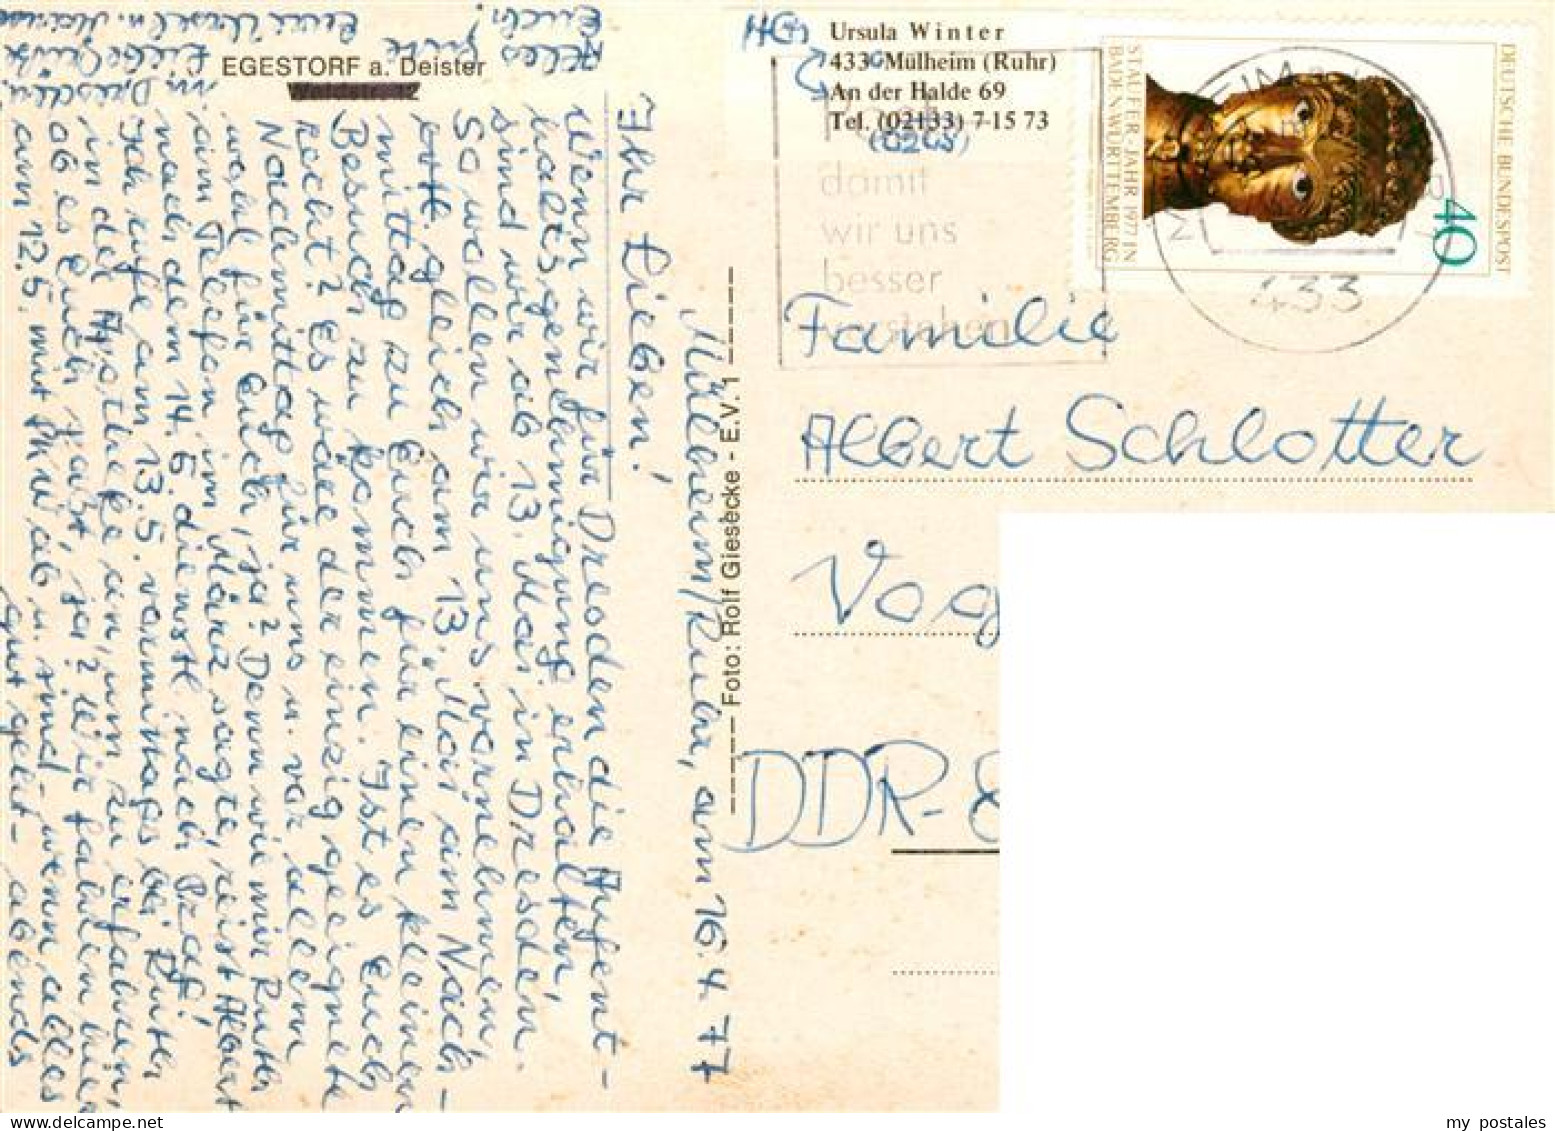 EGESTORF a. Deister
Waldstr. 12
Mülheim/Ruhr, am 16.4.77
Ihr Lieben!
Wenn wir für Dresden die Aufent-
haltsgenehmigung erhalten,
sind wir ab 13. Mai in Dresden.
So wollen wir uns vornehmen,
gleich am 13. Mai am Nach-
mittag zu Euch für einen kleinen
Besuch zu kommen. Ist es Euch
recht? Es wäre der einzig geeignete
Nachmittag für uns u. vor allem
wohl für Euch, ja? Denn wie mir Ruth
am Telefon im März sagte, reist Albert
nach dem 14.5. dienstl. nach Prag!
Ich rufe am 13.5. vormittags bei Ruth
in der Apotheke an, um zu erfahren,
ob es Euch paßt, ja? Wir fahren hier
am 12.5. mit PKW ab u. sind - wenn alles
gut geht - abends
in Dresden.
Liebe Grüße
Alles Gute
Euch!
Foto: Rolf Giesecke - E.V. 1
HG
Ursula Winter
433 Mülheim (Ruhr)
An der Halde 69
Tel. (02133) 7 15 73
(0208)
damit
wir uns
besser
verstehen
DEUTSCHE BUNDESPOST
40
STAUFER-JAHR 1977 IN
BADEN-WÜRTTEMBERG
433
Familie
Albert Schlotter
Vog
DDR-8
my postales